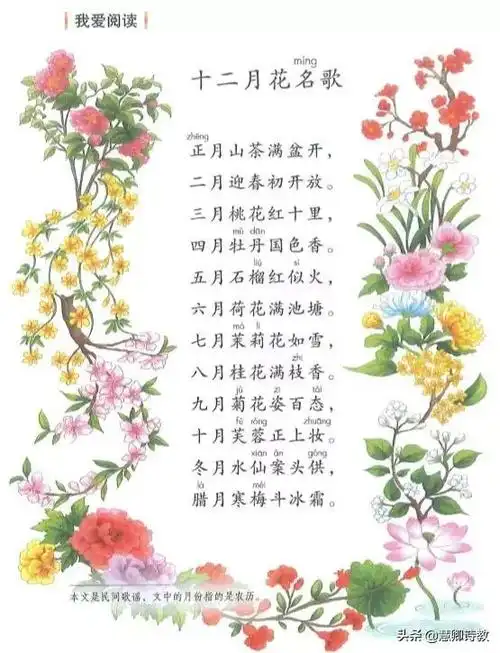 我爱阅读
míng
十二月花名歌
zhēng
正月山茶满盆开，
二月迎春初开放。
三月桃花红十里，
mǔ dān
四月牡丹国色香。
liú sì
五月石榴红似火，
六月荷花满池塘。
mò lì
七月茉莉花如雪，
zhī
八月桂花满枝香。
jú zī tài
九月菊花姿百态，
fú róng zhuāng
十月芙蓉正上妆。
xiān àn gòng
冬月水仙案头供，
là méi
腊月寒梅斗冰霜。
本文是民间歌谣，文中的月份指的是农历。
头条@慧卿诗教